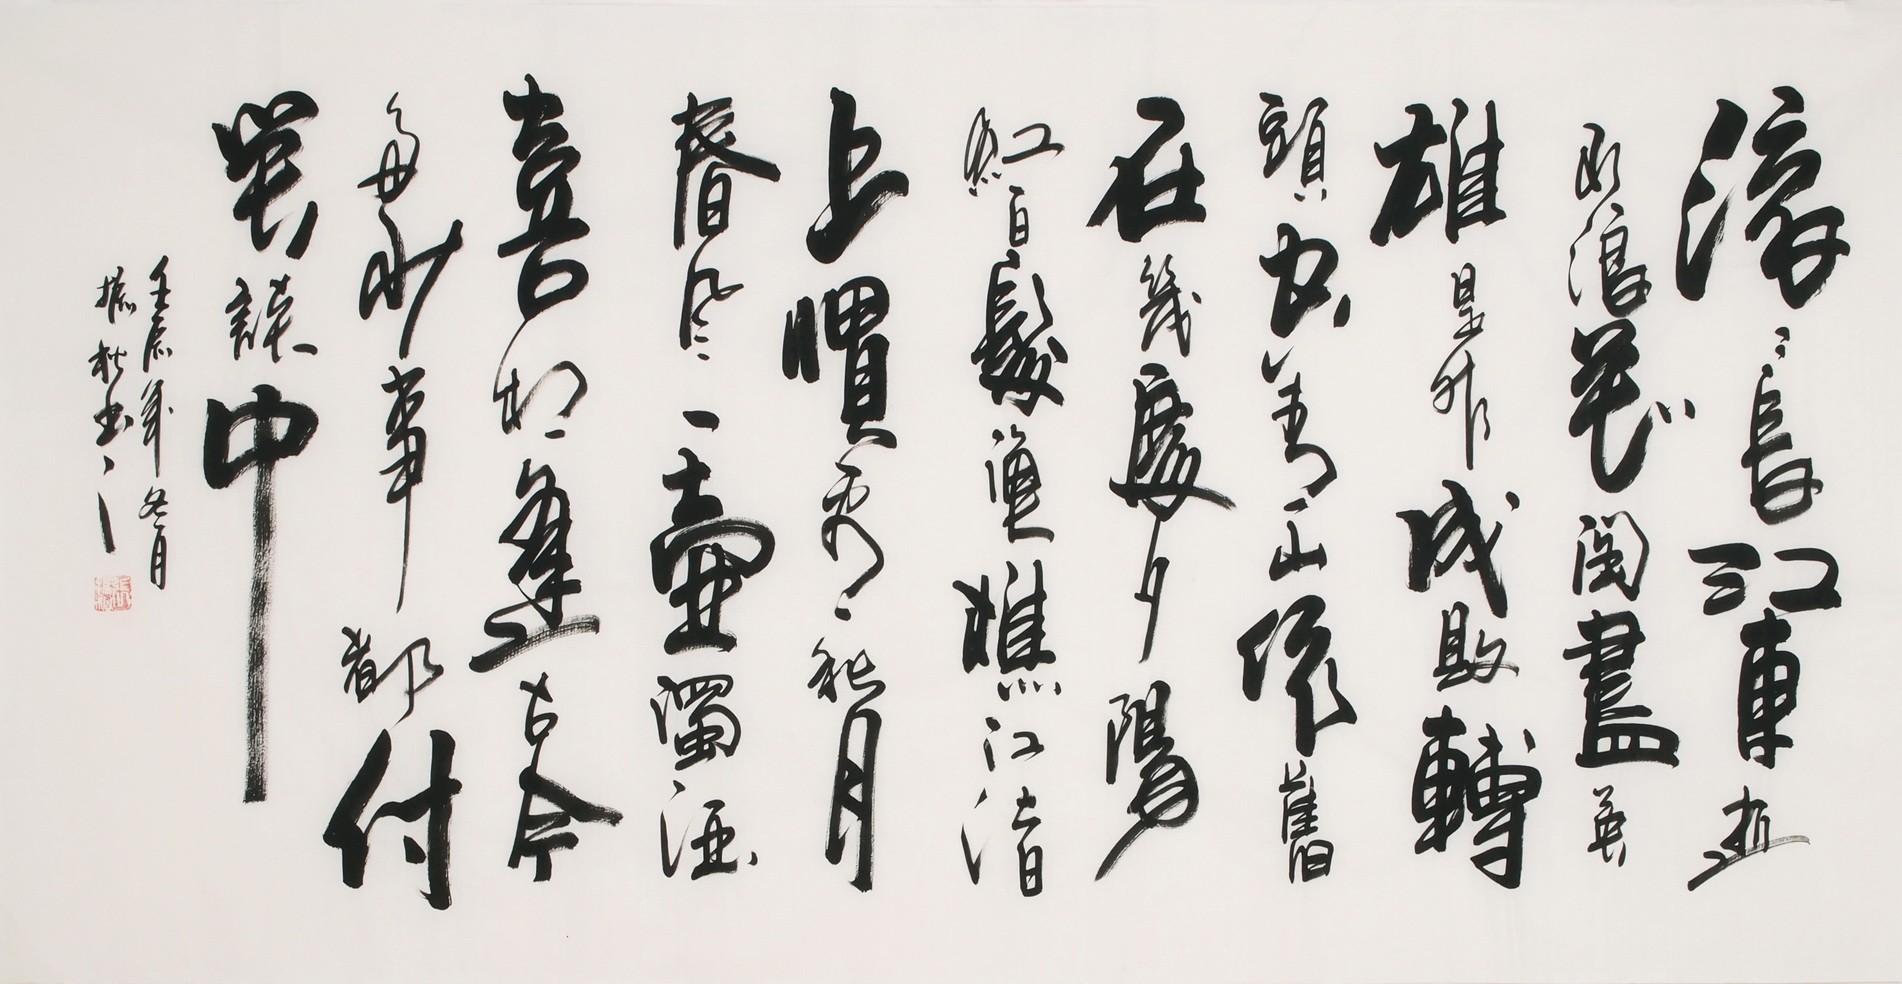 滚々長江東逝
水浪花淘盡英
雄是非成敗轉
頭空青山依舊
在幾度夕陽
紅白髮漁樵江渚
上慣看秋月
春風一壺濁酒
喜相逢古今
多少事都付
笑談中
壬辰年冬月
振秋书